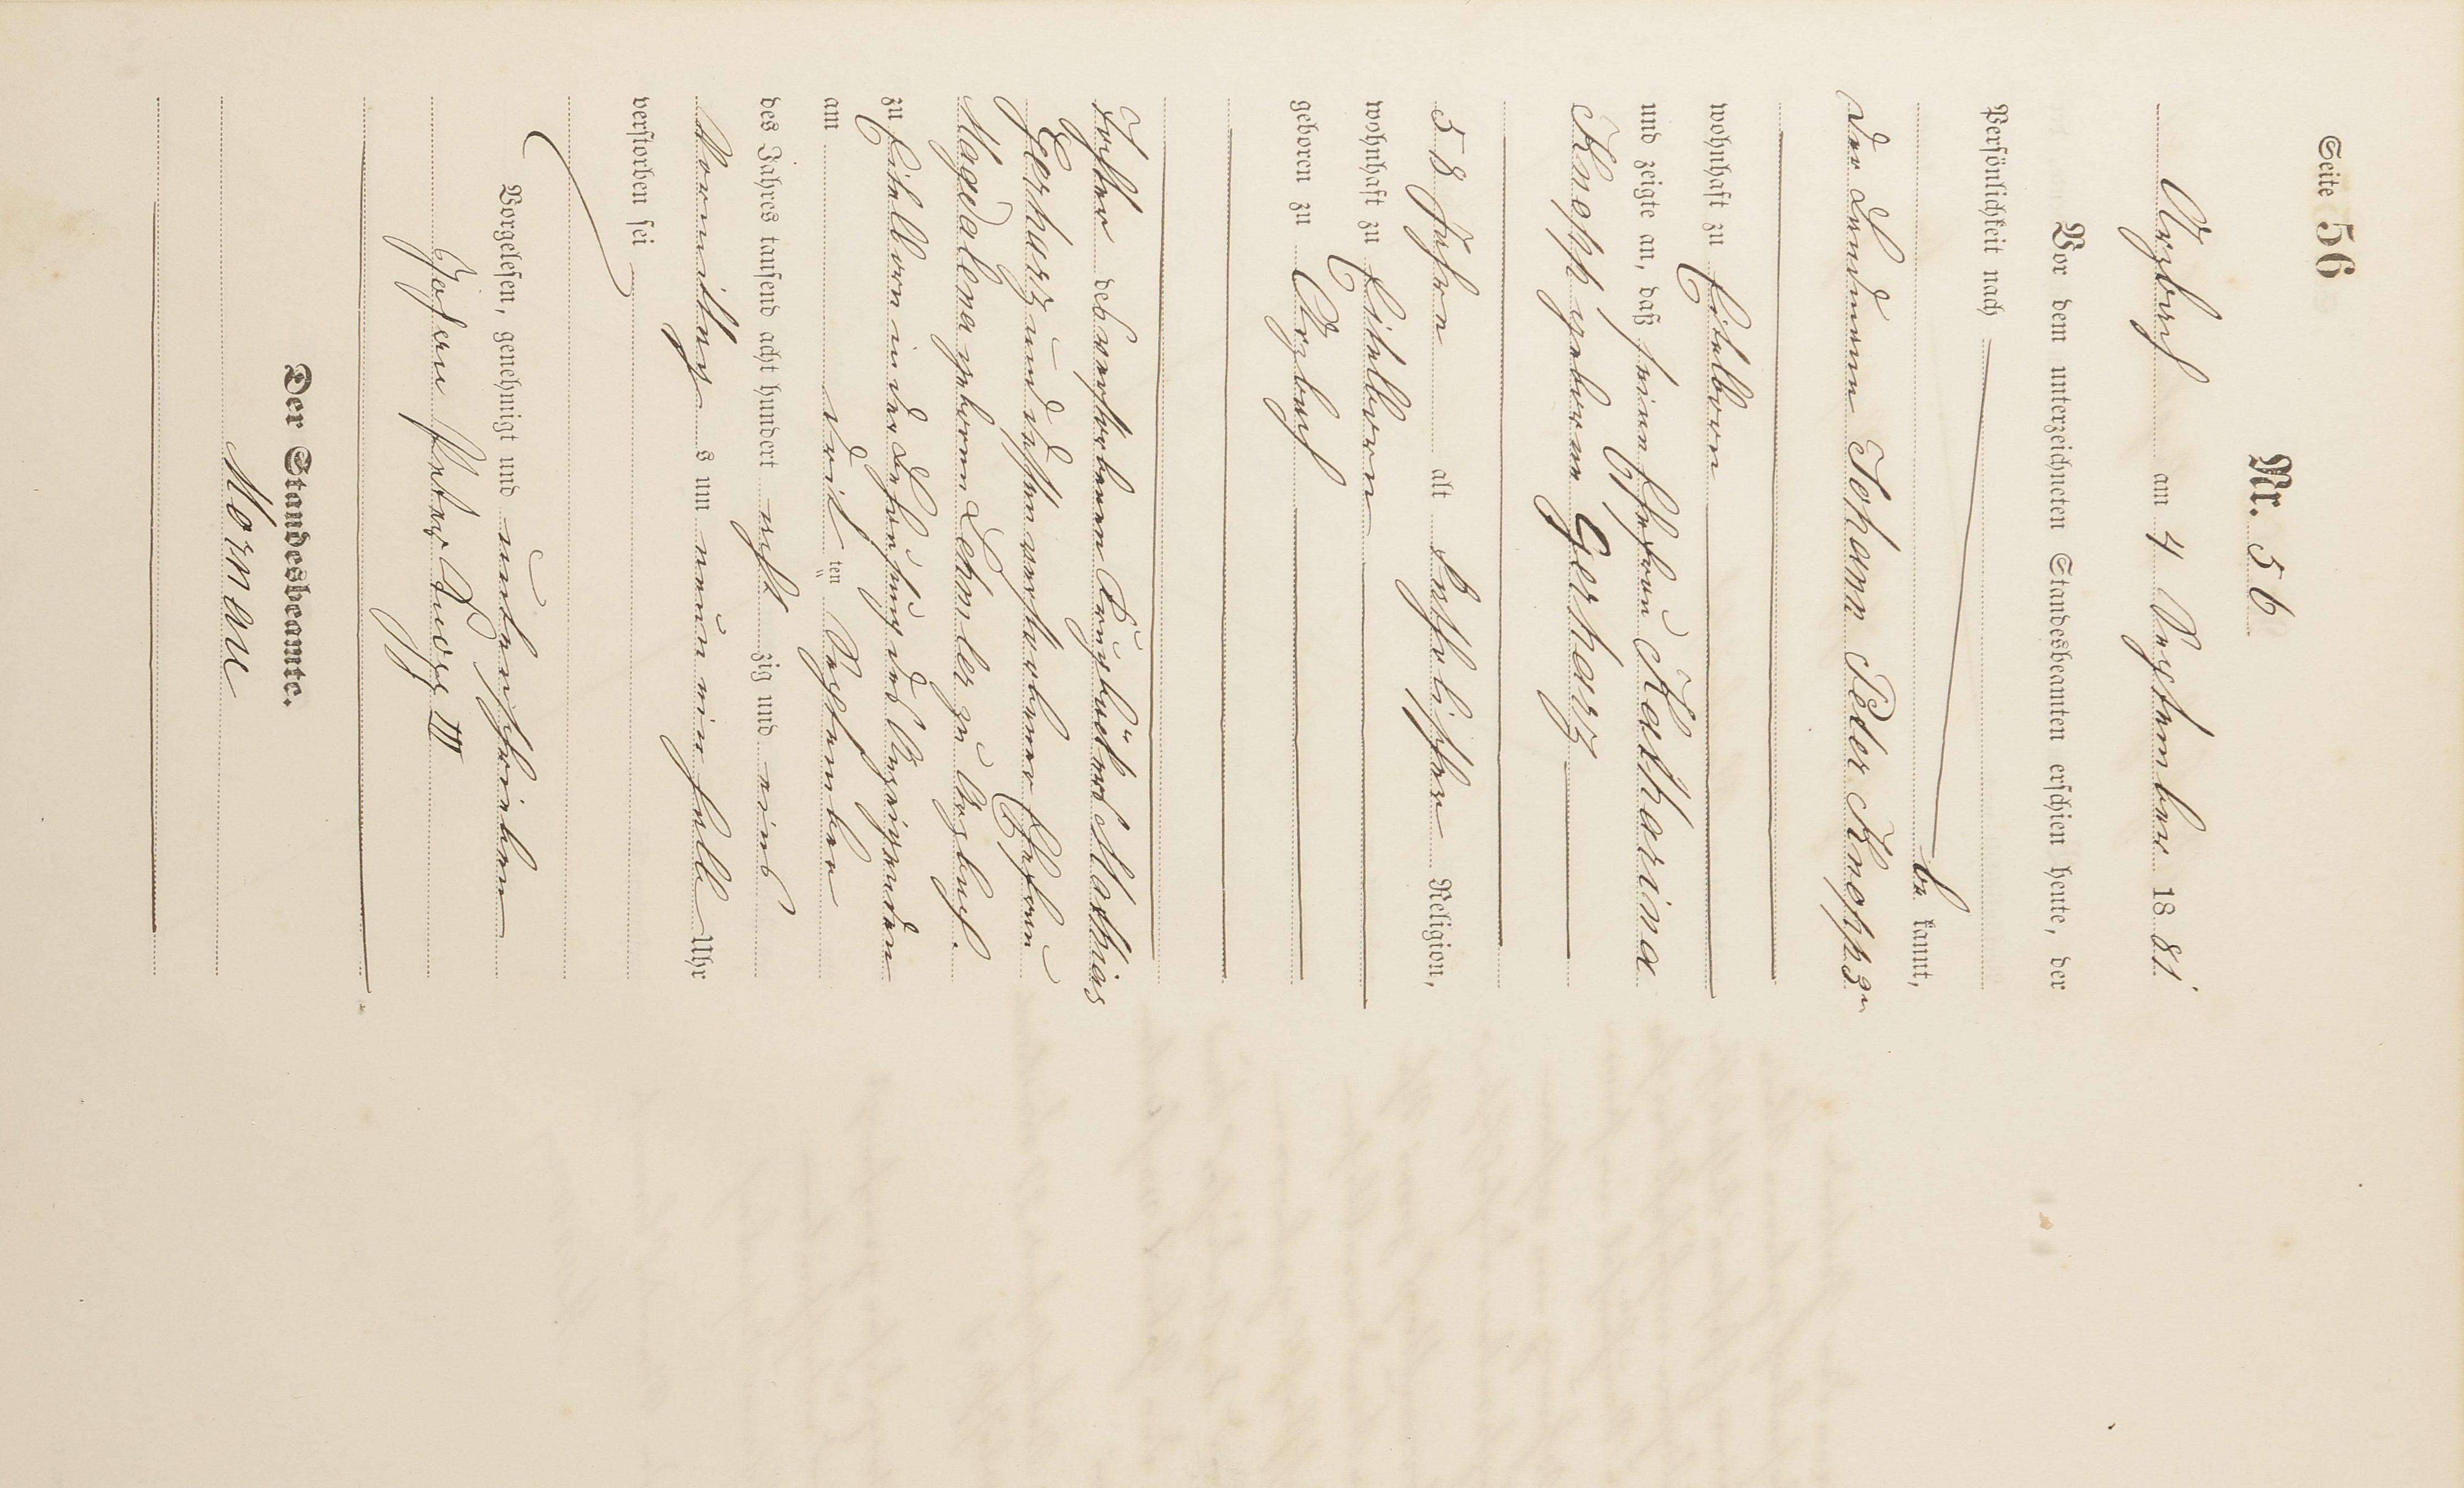 Seite 56
Nr. 56
Arzbach am 4 September 1881.
Vor dem unterzeichneten Standesbeamten erschien heute, der
Persönlichkeit nach
be kannt,
der Landmann Johann Peter Knopp zu
wohnhaft zu Eitelborn
und zeigte an, daß seine Ehefrau Katharina
Knopp geborne Gerharz
58 Jahre alt katholischer Religion,
wohnhaft zu Eitelborn
geboren zu Arzbach
Tochter des verstorbenen Krugbäckers Mathias
Gerharz und dessen verstorbenen Ehefrau
Magdalena geborne Lehmler zu Arzbach.
zu Eitelborn in der Behausung des Anzeigenden
am drit ten September
des Jahres tausend acht hundert acht zig und eins
Vormittag s um neun ein halb Uhr
verstorben sei
Vorgelesen, genehmigt und unterschrieben
Johann Peter III
Der Standesbeamte.